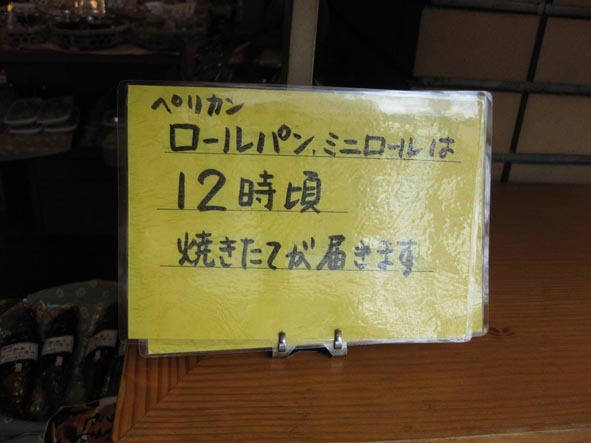 ペリカン
ロールパン、ミニロールは
12時頃
焼きたてが届きます